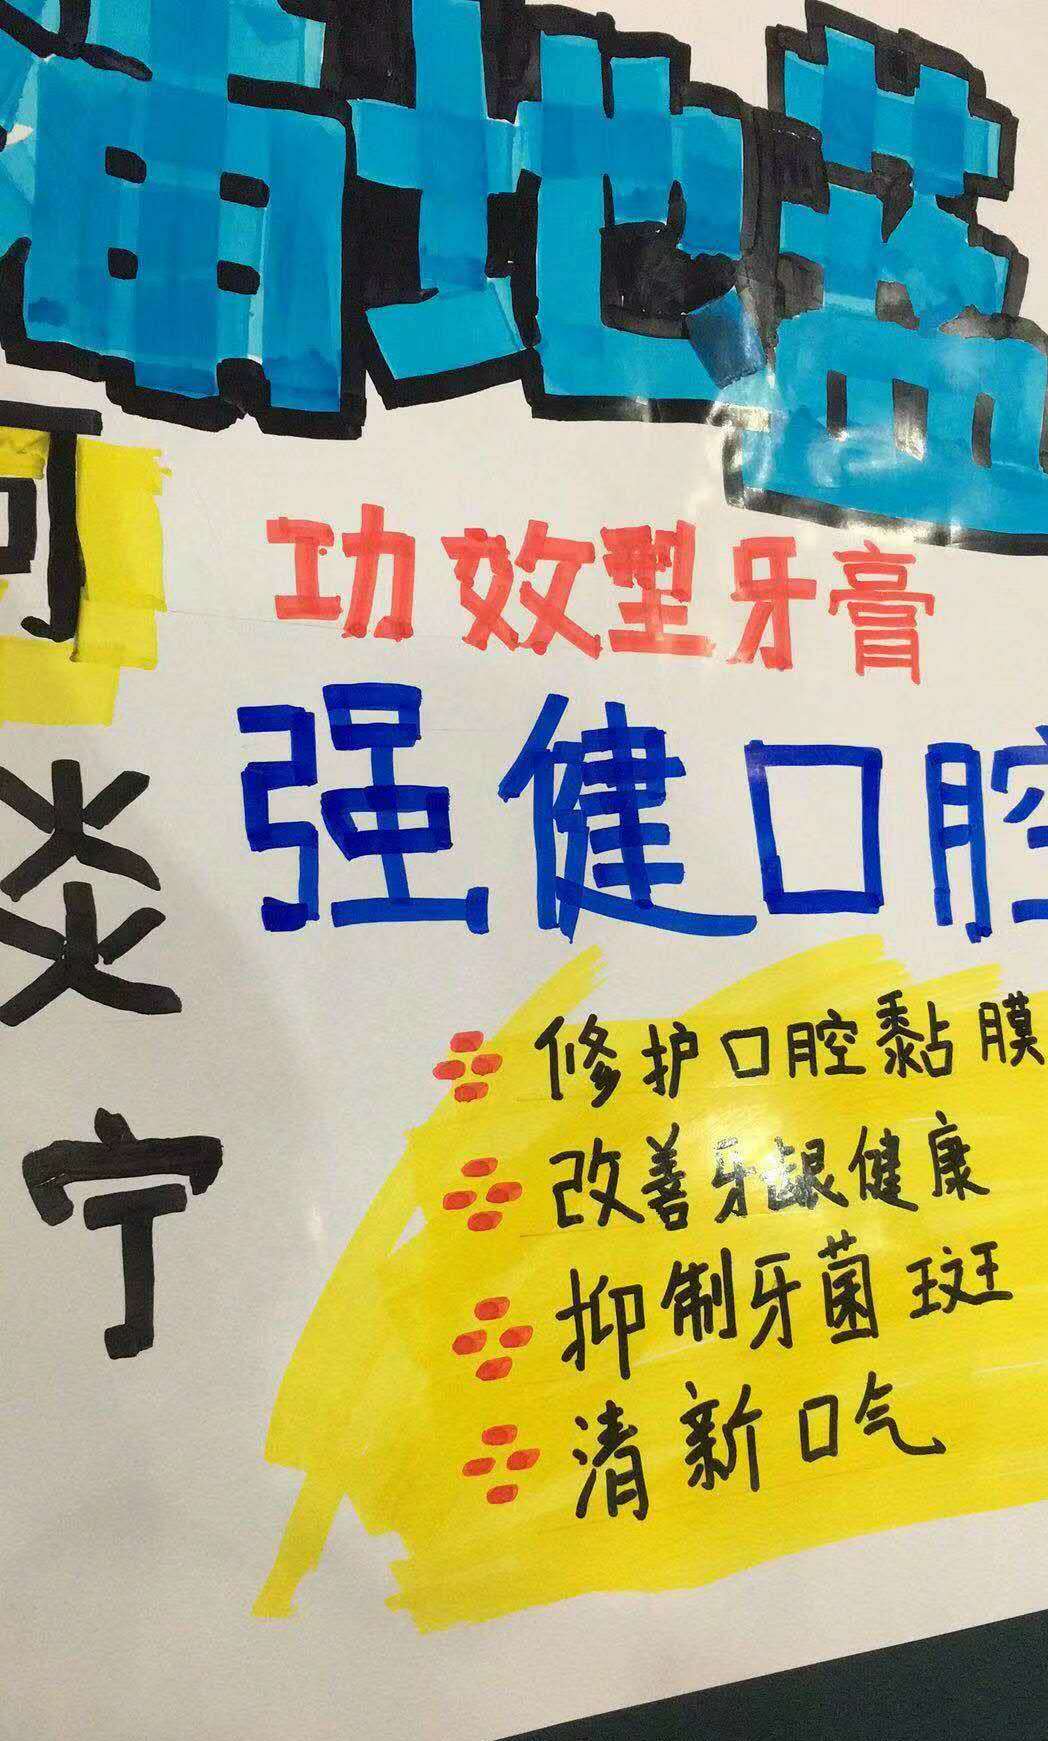 蒲地蓝
可炎宁
功效型牙膏
强健口腔
修护口腔黏膜
改善牙龈健康
抑制牙菌斑
清新口气